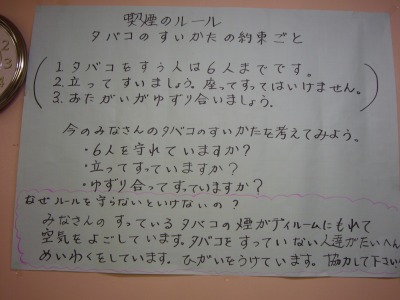 喫煙のルール
タバコのすいかたの約束ごと
1. タバコをすう人は6人までです。
2. 立ってすいましょう。座ってすってはいけません。
3. おたがいがゆずり合いましょう.
今のみなさんのタバコのすいかたを考えてみよう。
・6人を守れていますか?
・立ってすっていますか?
・ゆずり合ってすっていますか?
なぜルールを守らないといけないの?
みなさんのすっているタバコの煙がディルームにもれて
空気をよごしています。タバコをすっていない人達がたいへん
めいわくをしています。ひがいをうけています。協力して下さい